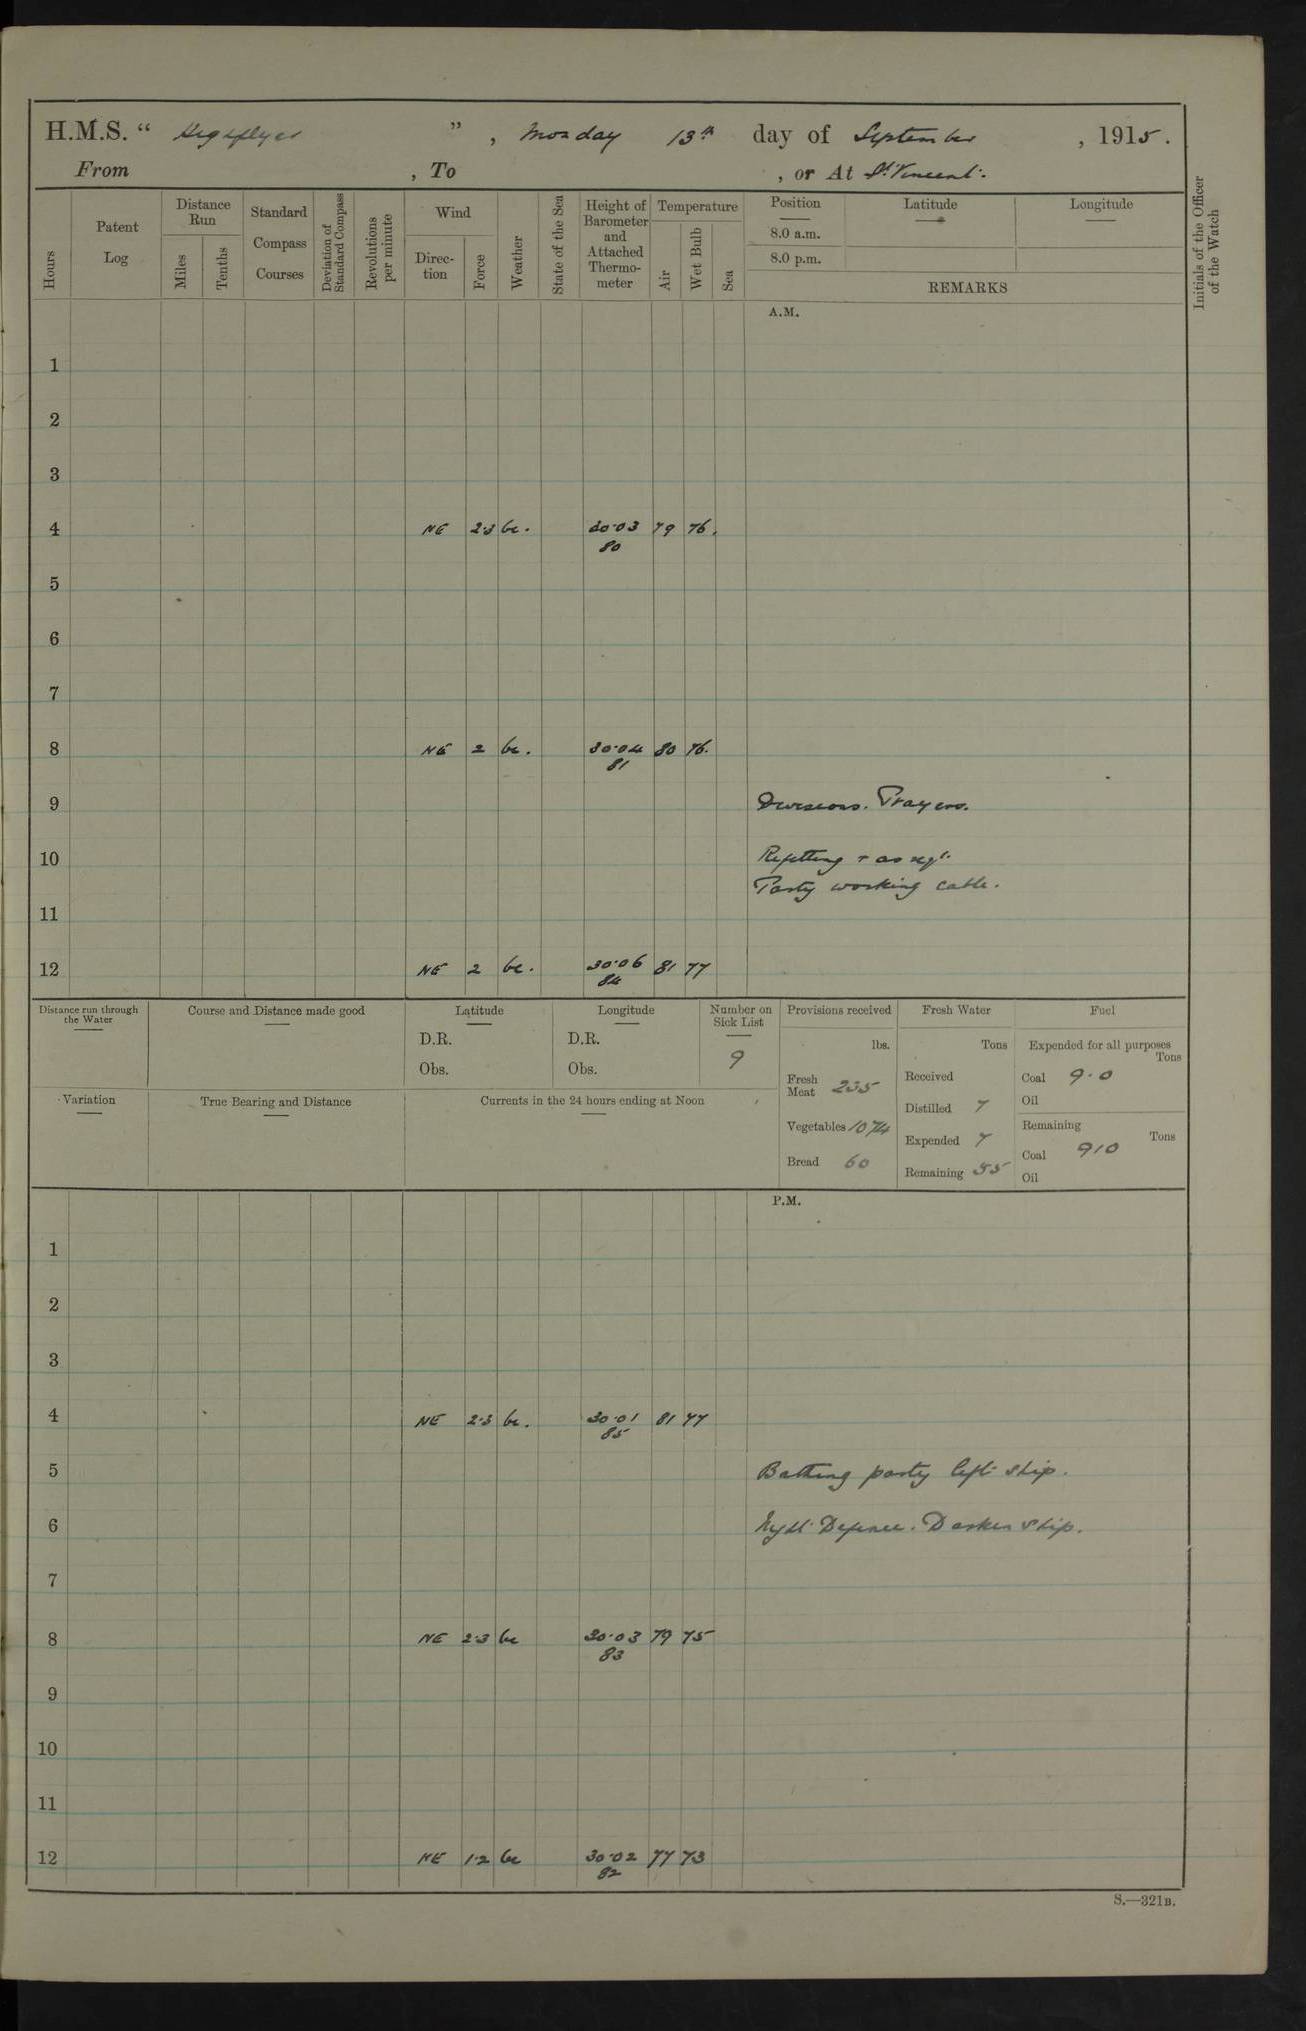 H.M.S. “ Highflyer ” , Monday 13th day of September , 1915.
From , To , or At St. Vincent.
Hours
Patent Log
Distance Run
Miles
Tenths
Standard Compass Courses
Deviation of Standard Compass
Revolutions per minute
Wind
Direction
Force
Weather
State of the Sea
Height of Barometer and Attached Thermometer
Temperature
Air
Wet Bulb
Sea
Position
8.0 a.m.
8.0 p.m.
Latitude
Longitude
REMARKS
Initials of the Officer of the Watch
A.M.
1
2
3
4 NE 2.3 bc. 30.03 79 76.
80
5
6
7
8 NE 2 bc. 30.04 80 76.
81
9 Divisions. Prayers.
10 Refitting + as reqt.
Party working cable.
11
12 NE 2 bc. 30.06 81 77
84
Distance run through the Water
Course and Distance made good
Latitude
D.R.
Obs.
Longitude
D.R.
Obs.
Number on Sick List
9
Provisions received
lbs.
Fresh Meat 235
Vegetables 1074
Bread 60
Fresh Water
Tons
Received
Distilled 7
Expended 7
Remaining 55
Fuel
Expended for all purposes
Tons
Coal 9.0
Oil
Remaining
Tons
Coal 910
Oil
Variation
True Bearing and Distance
Currents in the 24 hours ending at Noon
P.M.
1
2
3
4 NE 2.3 bc. 30.01 81 77
85
5 Bathing party left ship.
6 Night Defence. Darken ship.
7
8 NE 2.3 bc 30.03 79 75
83
9
10
11
12 NE 1.2 bc 30.02 77 73
82
S.—321B.